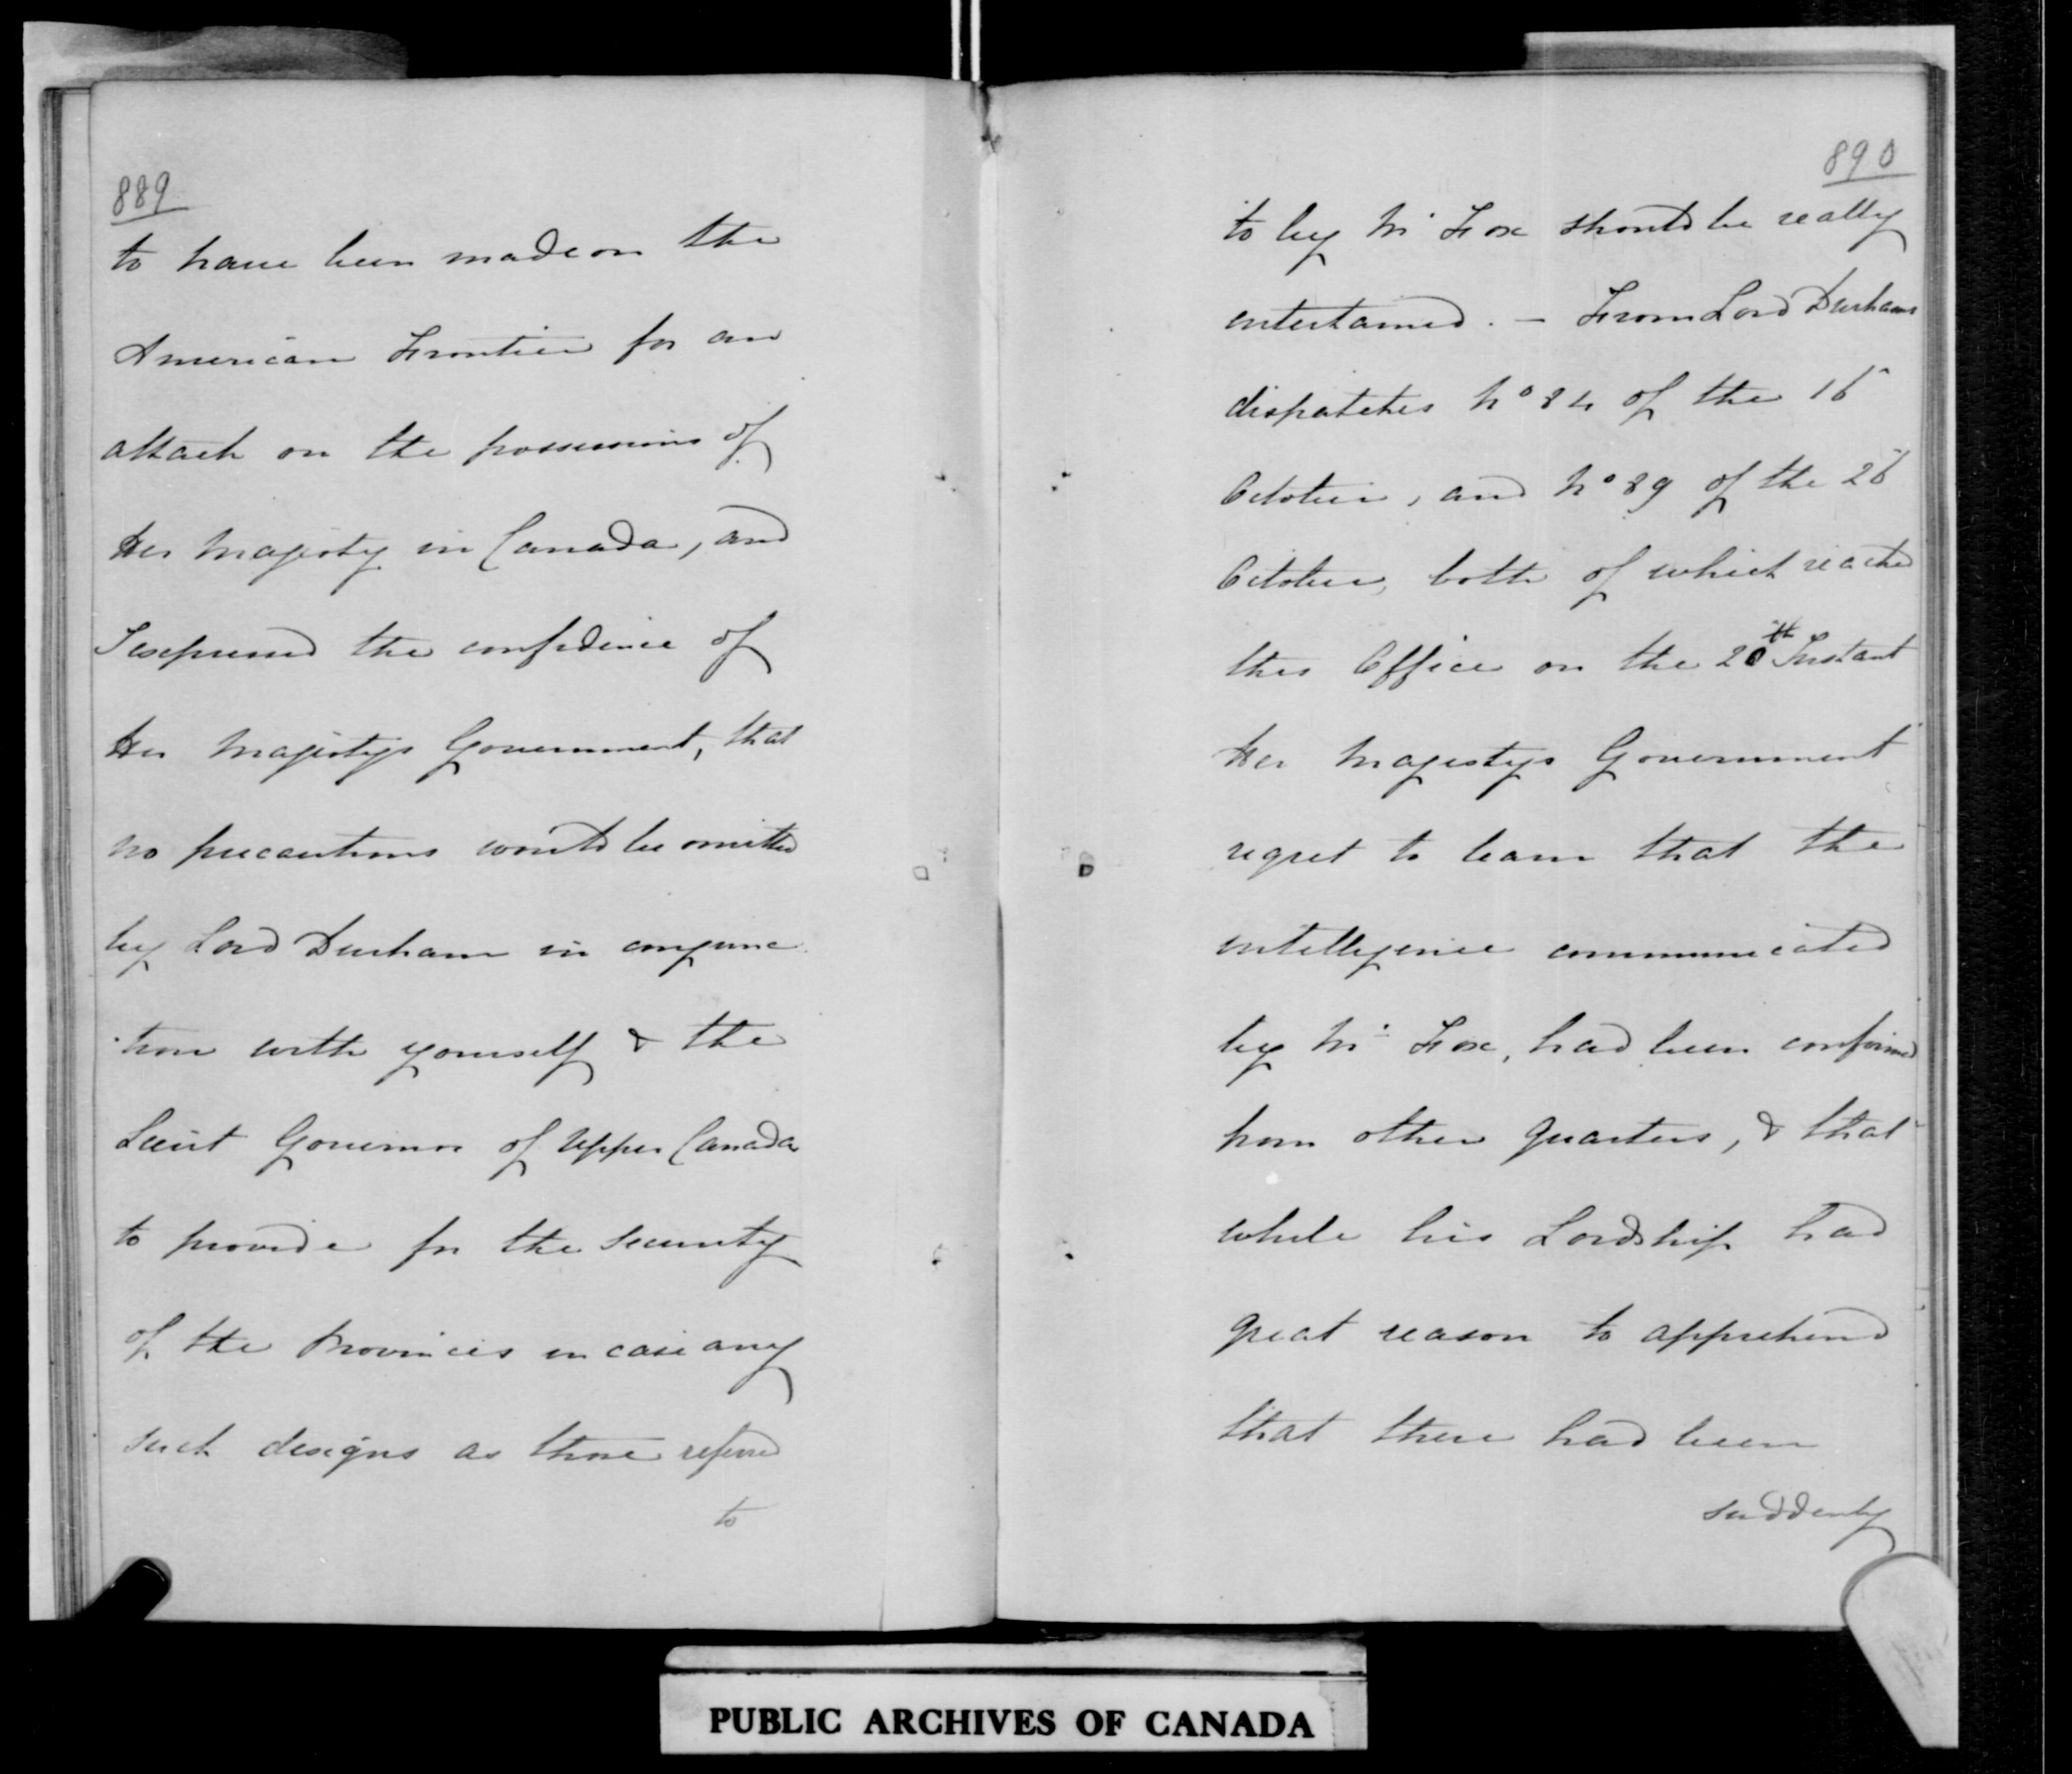 889
to have been made on the
American Frontier for an
attack on the possessions of
Her Majesty in Canada, and
I expressed the confidence of
Her Majestys Government, that
no precautions would be omitted
by Lord Durham in conjunc
tion with yourself & the
Lieut Governor of Upper Canada
to provide for the Security
of the Provinces in case any
such designs as those referred
to
890
to by Mr Fox should be really
entertained. - From Lord Durhams
dispatches No 84 of the 16
October, and No 89 of the 26
October, both of which reached
this Office on the 20th Instant
Her Majestys Government
regret to learn that the
intelligence communicated
by Mr Fox, had been confirmed
from other quarters, & that
while his Lordship had
great reason to apprehend
that there had been
suddenly
PUBLIC ARCHIVES OF CANADA